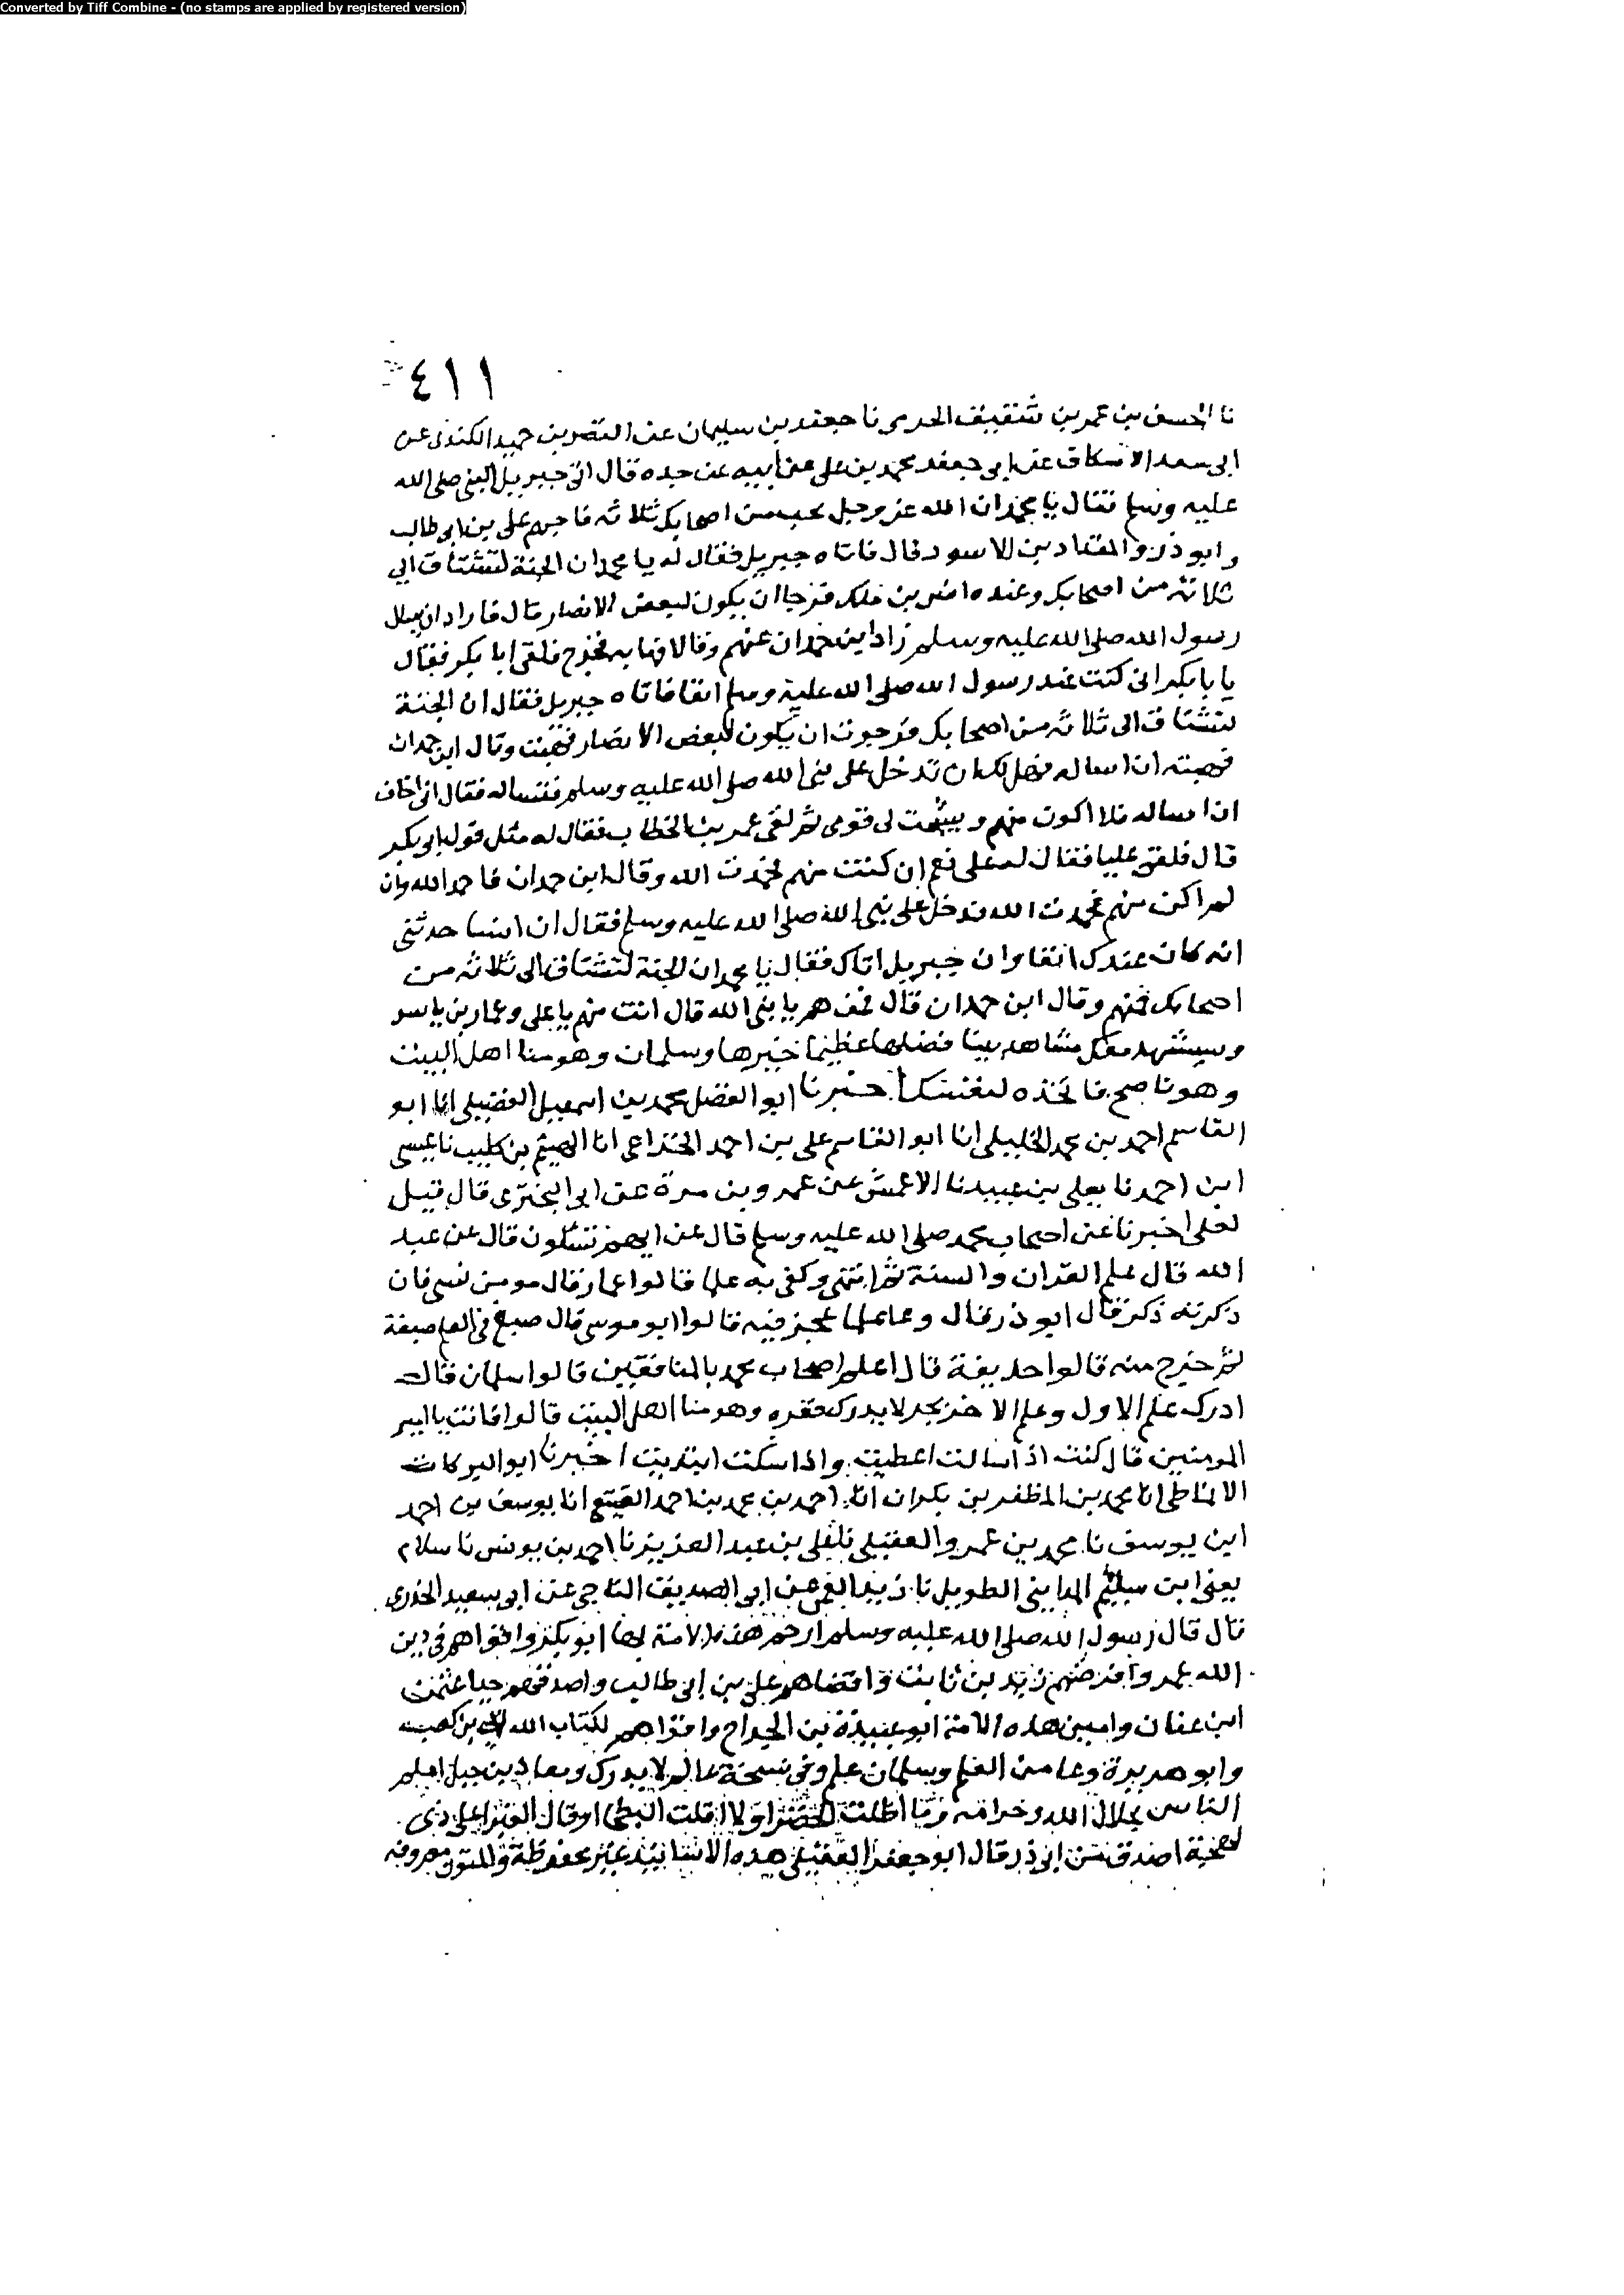 Converted by Tiff Combine - (no stamps are applied by registered version)
٤١١
نا الحسن بن عمر بن شقيق الجرمي نا جعفر بن سليمان عن النضر بن حميد الكندي عن
ابي سعد الاسكاف عن ابي جعفر محمد بن علي عن ابيه عن جده قال اتى جبريل النبي صلى الله
عليه وسلم فقال يا محمد ان الله عز وجل يحب من اصحابك ثلاثه فاحبهم علي بن ابي طالب
وابو ذر والمقداد بن الاسود قال فاتاه جبريل فقال له يا محمد ان الجنة لتشتاق الى
ثلاثه من اصحابك وعنده انس بن ملك فرجا ان يكون لبعض الانصار قال فاراد ان يسال
رسول الله صلى الله عليه وسلم زاد ابن حمدان عنهم وقالا فهابه فخرج فلقى ابا بكر فقال
يا با بكر اني كنت عند رسول الله صلى الله عليه وسلم انفا فاتاه جبريل فقال ان الجنة
تشتاق الى ثلاثه من اصحابك فرجوت ان يكون لبعض الانصار فهبت وقال ابن حمدان
فهبته ان اساله فهل لك ان تدخل على نبي الله صلى الله عليه وسلم فتساله فقال اني اخاف
ان اساله فلا اكون منهم ويشمت بي قومي ثم لقى عمر بن الخطاب فقال له مثل قول ابي بكر
قال فلقى عليا فقال له علي نعم ان كنت منهم فحمدت الله وقال ابن حمدان فاحمد الله وان
لم اكن منهم فحمدت الله فدخل على نبي الله صلى الله عليه وسلم فقال ان انسا حدثني
انه كان عندك انفا وان جبريل اتاك فقال يا محمد ان الجنة لتشتاق الى ثلاثه من
اصحابك فمنهم وقال ابن حمدان قال فمن هم يا نبي الله قال انت منهم يا علي وعمار بن ياسر
وسيشهد معك مشاهد بينا فضلها عظيما خيرها وسلمان وهو منا اهل البيت
وهو ناصح فاتخذه لنفسك اخبرنا ابو الفضل محمد بن اسمعيل الفضيلي انا ابو
القاسم احمد بن محمد الخليلي انا ابو القاسم علي بن احمد الخزاعي انا الهيثم بن كليب نا عيسى
ابن احمد نا يعلى بن عبيد نا الاعمش عن عمرو بن مرة عن ابي البختري قال قيل
لعلي اخبرنا عن اصحاب محمد صلى الله عليه وسلم قال عن ايهم تسئلون قال عن عبد
الله قال علم القران والسنة ثم انتهى وكفى به علما قالوا عمار قال مومن نسي فان
ذكرته ذكر قال ابو ذر قال وعا علما عجز فيه قالوا ابو موسى قال صبغ في العلم صبغة
ثم خرج منه قالوا حذيفة قال اعلم اصحاب محمد بالمنافقين قالوا سلمان قال
ادرك علم الاول وعلم الاخر بحر لا يدرك قعره وهو منا اهل البيت قالوا فانت يا امير
المومنين قال كنت اذا سالت اعطيت واذا سكت ابتديت اخبرنا ابو البركات
الانماطي انا محمد بن المظفر بن بكران انا احمد بن محمد بن احمد العتيقي انا يوسف بن احمد
ابن يوسف نا محمد بن عمرو العقيلي نا علي بن عبد العزيز نا احمد بن يونس نا سلام
يعني ابن سليم المدايني الطويل نا زيد العمي عن ابي الصديق الناجي عن ابي سعيد الخدري
قال قال رسول الله صلى الله عليه وسلم ارحم هذه الامة بها ابو بكر واقواهم في دين
الله عمر وافرضهم زيد بن ثابت واقضاهم علي بن ابي طالب واصدقهم حيا عثمن
ابن عفان وامين هذه الامة ابو عبيدة بن الجراح واقراهم لكتاب الله ابي بن كعب
وابو هريرة وعا من العلم وسلمان علم وفي نسخة عالم لا يدرك ومعاذ بن جبل اعلم
الناس بحلال الله وحرامه وما اظلت الخضرا ولا اقلت البطحا او قال الغبرا على ذي
لهجة اصدق من ابي ذر قال ابو جعفر العقيلي هذه الاسانيد غير محفوظة والمتون معروفه